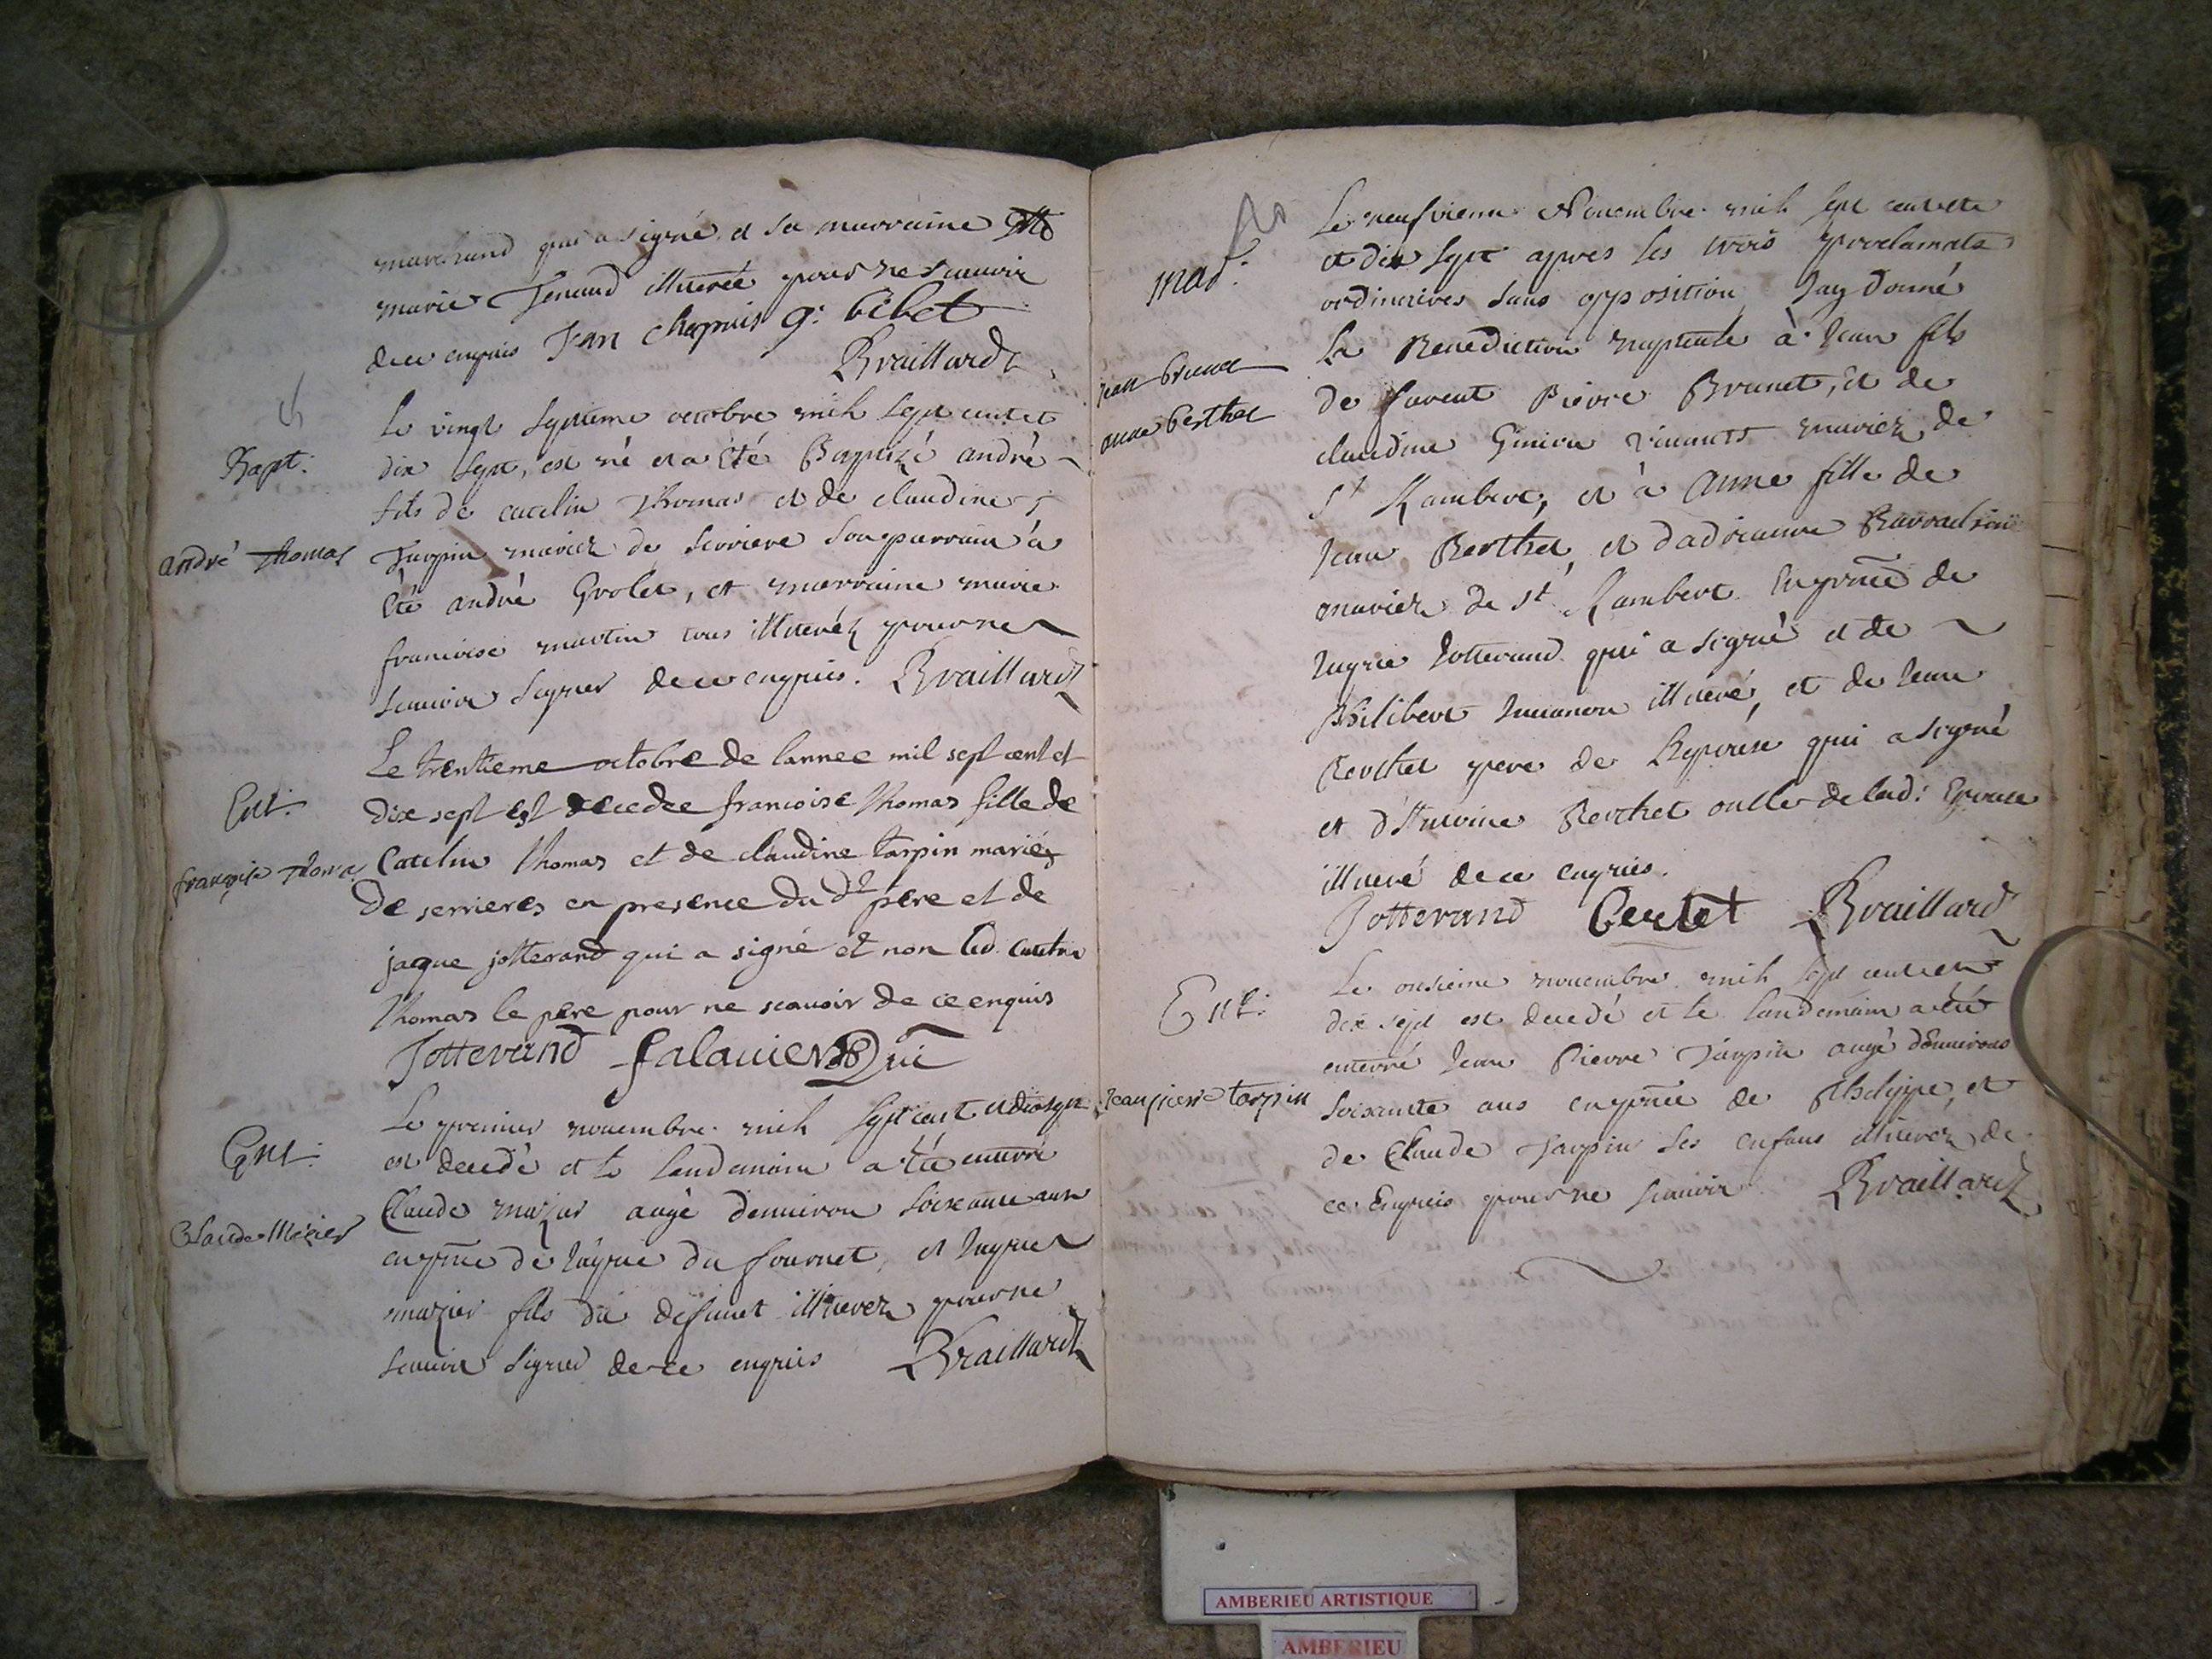 marchand qui a signé, et sa marraine
marie Tenaud illiterée pour ne scauoir
de ce enquis Jean Chapuis g. bibet
Braillard
Bapt:
andré Thomas
Le vingt septieme octobre mil sept cent et
dix sept, est né et a été Baptizé andré
fils de catelin Thomas et de claudine
Tarpin mariez de serriere son parrain a
été andré Grolet, et marraine marie
francoise martin tous illiteréz pour ne
scauoir signer de ce enquis. Braillard
Ent:
françoise Thomas
Le trentieme octobre de lannee mil sept cent et
dix sept est decedee francoise thomas fille de
Catelin thomas et de claudine tarpin mariéz
De serrieres en presence du dt pere et de
jaque jotterand qui a signé et non led. Catelin
thomas le pere pour ne scauoir de ce enquis
Jotterand falauier
Ent:
Claude Mazier
Le premier nouembre mil sept cent et dix sept
est decedé et le lendemain a été enterré
Claude mazier augé denuiron soixante ans
en pnce de Jaque du fournet, et Jaque
mazier fils du defunct illiterez pour ne
scauoir signer de ce enquis Braillard
mad.
jean brunet
anne berthet
Le neufvieme Nouembre mil sept cent et
et dix sept apres les trois proclamats
ordinaires sans opposition Jay donné
La Benediction nuptiale à Jean fils
de fuent Pierre Brunet, et de
claudine Giniou viuants mariez de
St Rambert, et à Anne fille de
Jean Berthet, et dadrianne
mariez de St Rambert En pnce de
Jaque Jotterand qui a signé et de
Philibert Juuanon illiteré, et de Jean
Berthet pere de Lepouse qui a signé
et d'Antoine Berthet oncle de lad: Epouse
illiteré de ce enquis.
Jotterand Bertet Braillard
Ent:
Jean pierre tarpin
Le onsieme nouembre mil sept cent et
dix sept est decedé et le landemain a été
enterré Jean Pierre Tarpin augé denuiron
soixante ans en pnce de Philippe, et
de Claude Tarpin ses enfans illiteréz de
ce Enquis pour ne scauoir Braillard
AMBERIEU ARTISTIQUE
AMBERIEU